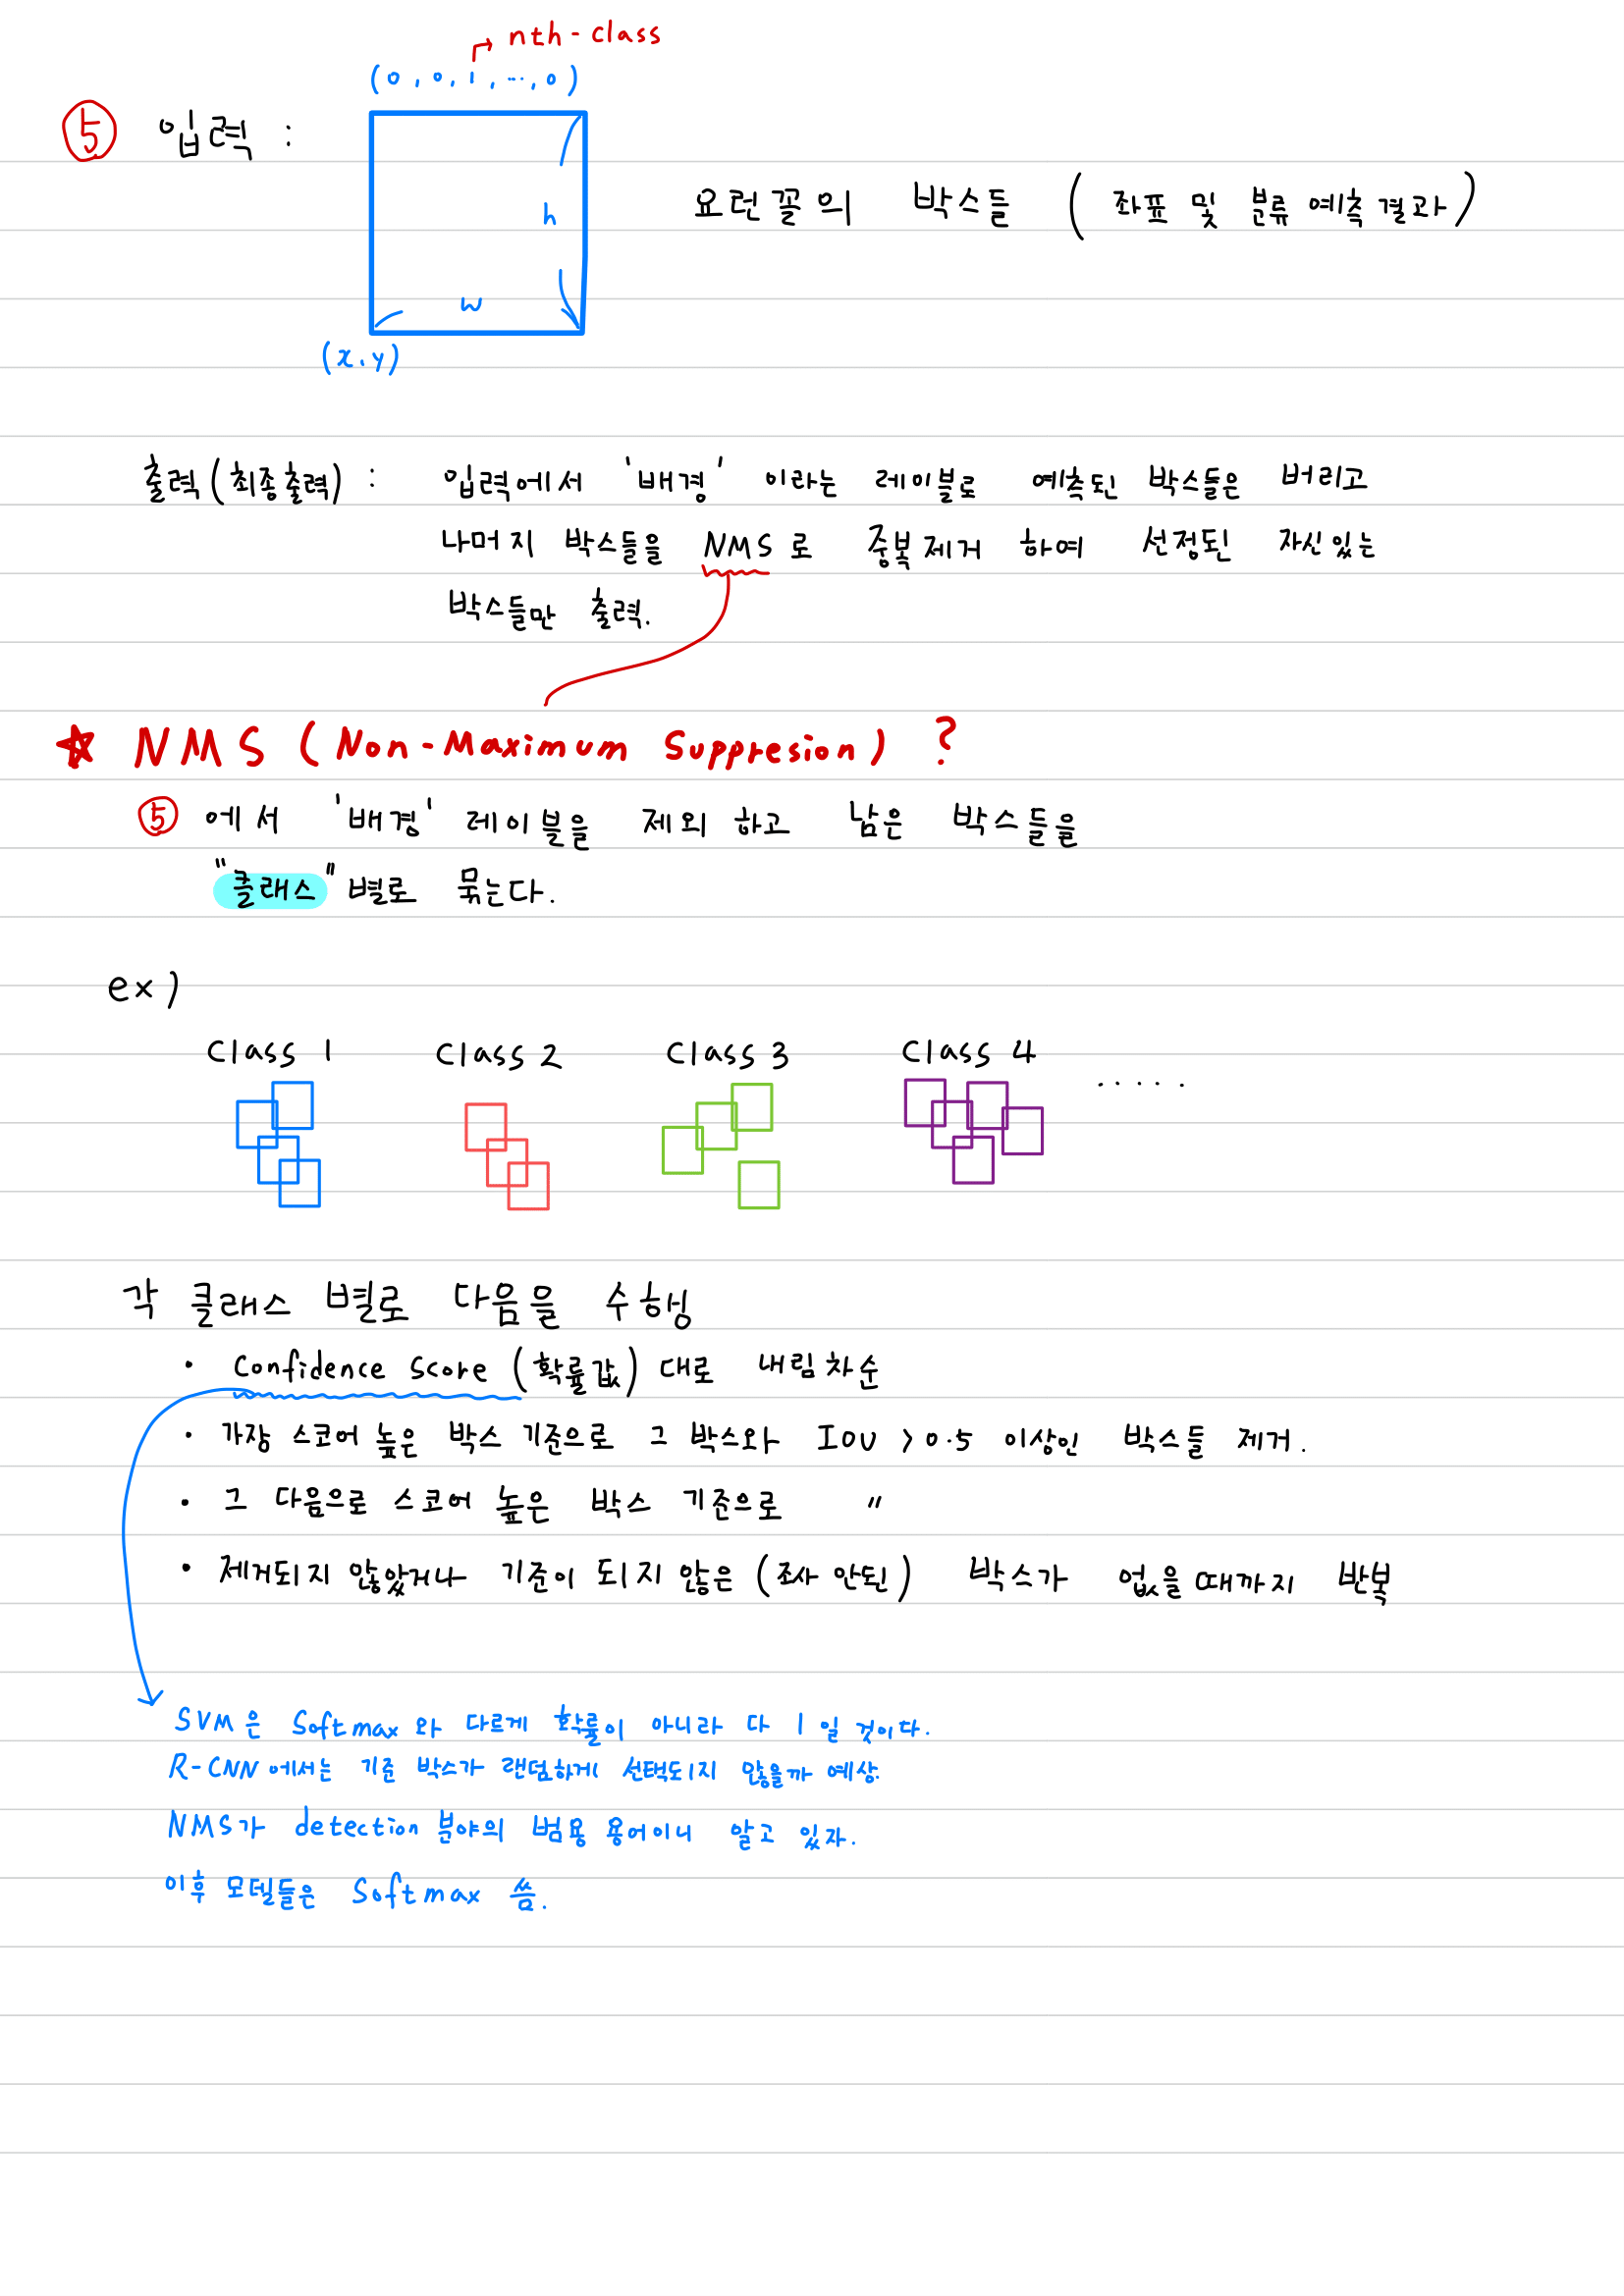 nth-class
(0, 0, 1, ..., 0)
⑤ 입력 :
h
요런꼴의 박스들 (좌표 및 분류 예측결과)
w
(x.y)
출력(최종출력) : 입력에서 '배경' 이라는 레이블로 예측된 박스들은 버리고
나머지 박스들을 NMS로 중복제거 하여 선정된 자신있는
박스들만 출력.
☆ NMS (Non-Maximum Suppresion) ?
⑤ 에서 '배경' 레이블을 제외 하고 남은 박스들을
"클래스" 별로 묶는다.
ex)
Class 1 Class 2 Class 3 Class 4 .....
각 클래스 별로 다음을 수행
• Confidence Score (확률값) 대로 내림차순
• 가장 스코어 높은 박스 기준으로 그 박스와 IOU > 0.5 이상인 박스들 제거.
• 그 다음으로 스코어 높은 박스 기준으로 〃
• 제거되지 않았거나 기준이 되지 않은 (조사 안된) 박스가 없을때까지 반복
SVM은 Softmax와 다르게 확률이 아니라 다 1 일 것이다.
R-CNN에서는 기준 박스가 랜덤하게 선택되지 않을까 예상.
NMS가 detection 분야의 범용 용어이니 알고 있자.
이후 모델들은 Softmax 씀.